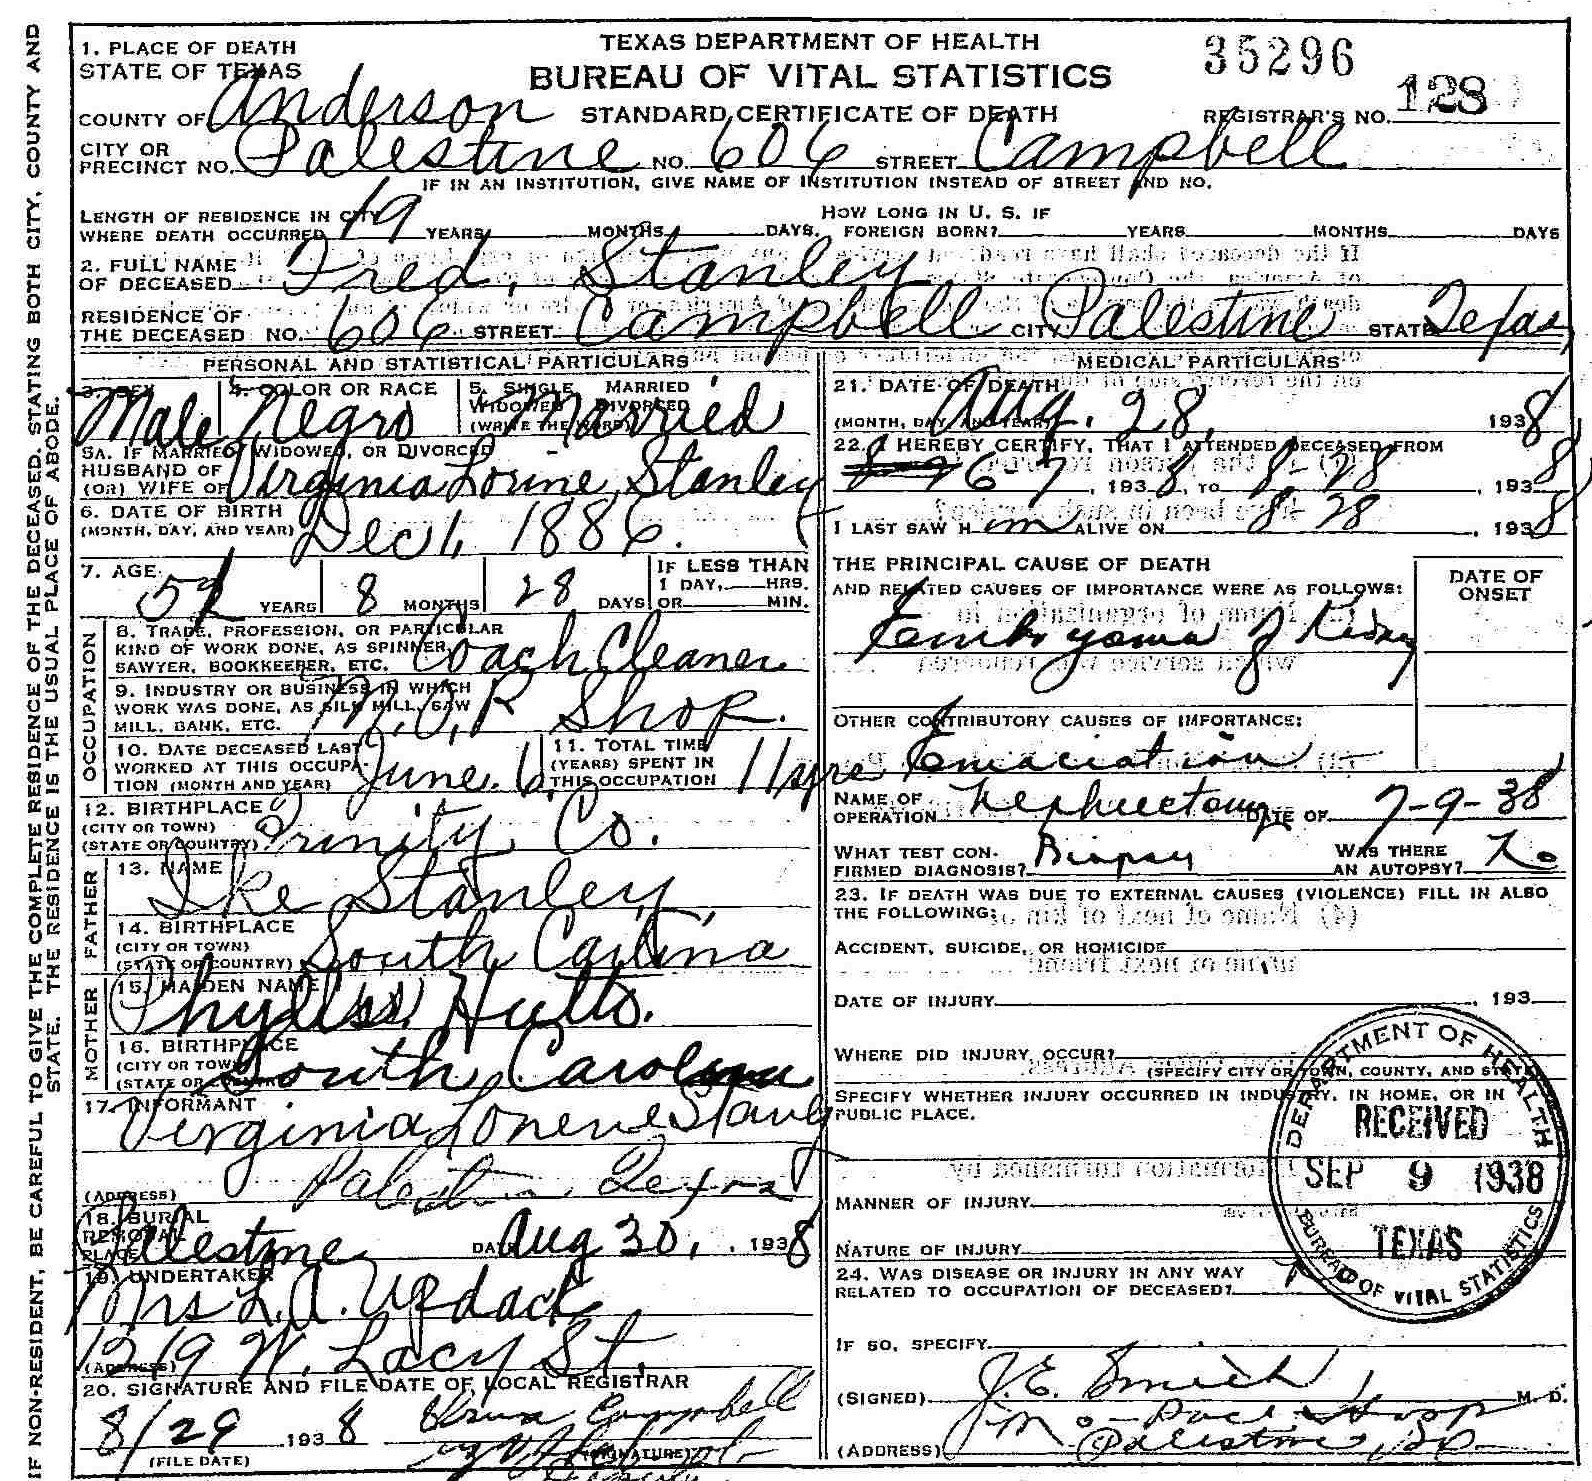 IF NON-RESIDENT, BE CAREFUL TO GIVE THE COMPLETE RESIDENCE OF THE DECEASED, STATING BOTH CITY, COUNTY AND
STATE. THE RESIDENCE IS THE USUAL PLACE OF ABODE.
TEXAS DEPARTMENT OF HEALTH
BUREAU OF VITAL STATISTICS
STANDARD CERTIFICATE OF DEATH
35296
REGISTRAR'S NO. 128
1. PLACE OF DEATH
STATE OF TEXAS
COUNTY OF Anderson
CITY OR
PRECINCT NO. Palestine NO. 606 STREET Campbell
IF IN AN INSTITUTION, GIVE NAME OF INSTITUTION INSTEAD OF STREET AND NO.
LENGTH OF RESIDENCE IN CITY HOW LONG IN U. S. IF
WHERE DEATH OCCURRED 19 YEARS MONTHS DAYS. FOREIGN BORN? YEARS MONTHS DAYS
2. FULL NAME
OF DECEASED Fred Stanley
RESIDENCE OF
THE DECEASED NO. 606 STREET Campbell CITY Palestine STATE Texas
PERSONAL AND STATISTICAL PARTICULARS
3. SEX 4. COLOR OR RACE 5. SINGLE MARRIED
WIDOWED DIVORCED
(WRITE THE WORD)
Male Negro Married
5A. IF MARRIED, WIDOWED, OR DIVORCED
HUSBAND OF
(OR) WIFE OF Virginia Lorine Stanley
6. DATE OF BIRTH
(MONTH, DAY, AND YEAR) Dec 1, 1886.
7. AGE IF LESS THAN
51 YEARS 8 MONTHS 28 DAYS 1 DAY, HRS.
OR MIN.
OCCUPATION
8. TRADE, PROFESSION, OR PARTICULAR
KIND OF WORK DONE, AS SPINNER,
SAWYER, BOOKKEEPER, ETC. Coach Cleaner
9. INDUSTRY OR BUSINESS IN WHICH
WORK WAS DONE, AS SILK MILL, SAW
MILL, BANK, ETC. M.O.P. Shop.
10. DATE DECEASED LAST
WORKED AT THIS OCCUPA-
TION (MONTH AND YEAR) June. 6,
11. TOTAL TIME
(YEARS) SPENT IN
THIS OCCUPATION 11 yrs
12. BIRTHPLACE
(CITY OR TOWN)
(STATE OR COUNTRY) Trinity Co.
FATHER
13. NAME
Ike Stanley
14. BIRTHPLACE
(CITY OR TOWN)
(STATE OR COUNTRY) South Carlina
MOTHER
15. MAIDEN NAME
Phyliss Hutto.
16. BIRTHPLACE
(CITY OR TOWN)
(STATE OR COUNTRY) South Carolina
17. INFORMANT
Virginia Lorene Stanly
(ADDRESS) Palestine, Texas
18. BURIAL
REMOVAL
PLACE Palestine DATE Aug 30, 1938
19. UNDERTAKER
Mrs L.A. Updack
(ADDRESS) 1219 W. Lacy St.
20. SIGNATURE AND FILE DATE OF LOCAL REGISTRAR
8/29 1938 Campbell
(FILE DATE) (SIGNATURE)
Deputy
MEDICAL PARTICULARS
21. DATE OF DEATH
(MONTH, DAY, AND YEAR) Aug. 28, 1938
22. I HEREBY CERTIFY, THAT I ATTENDED DECEASED FROM
6 7, 1938, TO 8-28, 1938
I LAST SAW H im ALIVE ON 8 28, 1938
THE PRINCIPAL CAUSE OF DEATH
AND RELATED CAUSES OF IMPORTANCE WERE AS FOLLOWS:
DATE OF
ONSET
Embryoma of Kidney
OTHER CONTRIBUTORY CAUSES OF IMPORTANCE:
Emaciation
NAME OF
OPERATION Nephrectomy DATE OF 7-9-38
WHAT TEST CON-
FIRMED DIAGNOSIS? Biopsy WAS THERE
AN AUTOPSY? No
23. IF DEATH WAS DUE TO EXTERNAL CAUSES (VIOLENCE) FILL IN ALSO
THE FOLLOWING:
ACCIDENT, SUICIDE, OR HOMICIDE
DATE OF INJURY , 193
WHERE DID INJURY OCCUR?
(SPECIFY CITY OR TOWN, COUNTY, AND STATE)
SPECIFY WHETHER INJURY OCCURRED IN INDUSTRY, IN HOME, OR IN
PUBLIC PLACE.
MANNER OF INJURY
NATURE OF INJURY
24. WAS DISEASE OR INJURY IN ANY WAY
RELATED TO OCCUPATION OF DECEASED? No
IF SO, SPECIFY
(SIGNED) J.E. M. D.
Mo-Pac Hosp
(ADDRESS) Palestine,
DEPARTMENT OF HEALTH
RECEIVED
SEP 9 1938
TEXAS
BUREAU OF VITAL STATISTICS